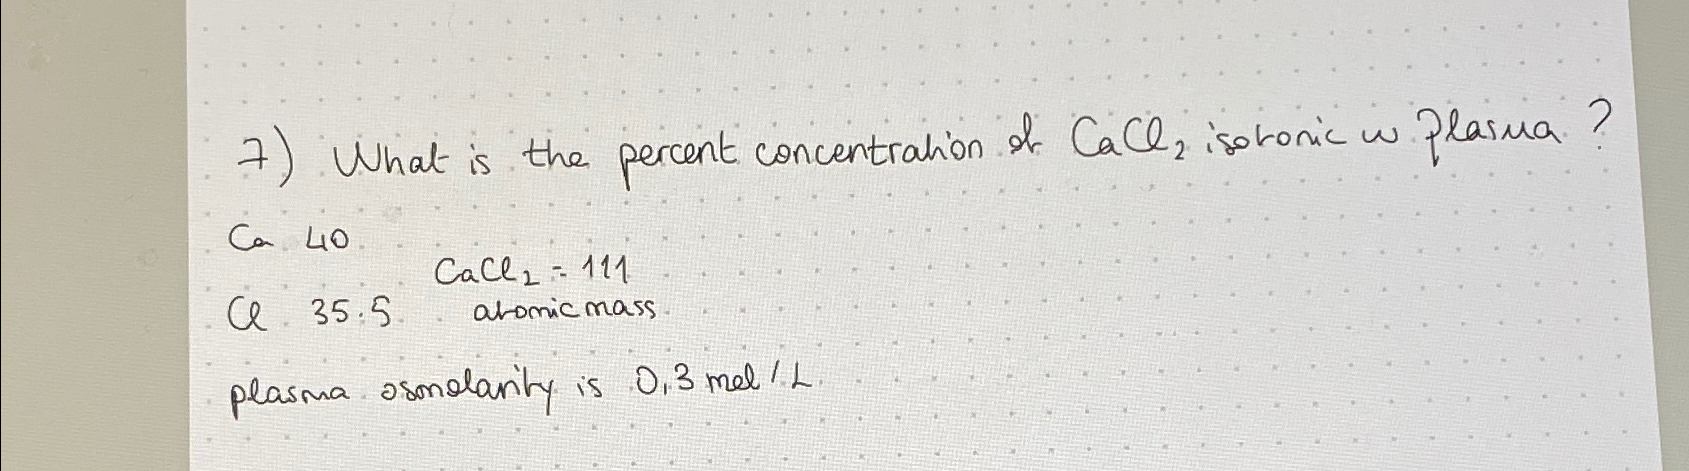 7) What is the percent concentration of CaCl₂ isotonic w Plasma ?
Ca 40
CaCl₂ = 111
Cl 35.5 atomic mass
plasma osmolarity is 0,3 mol / L